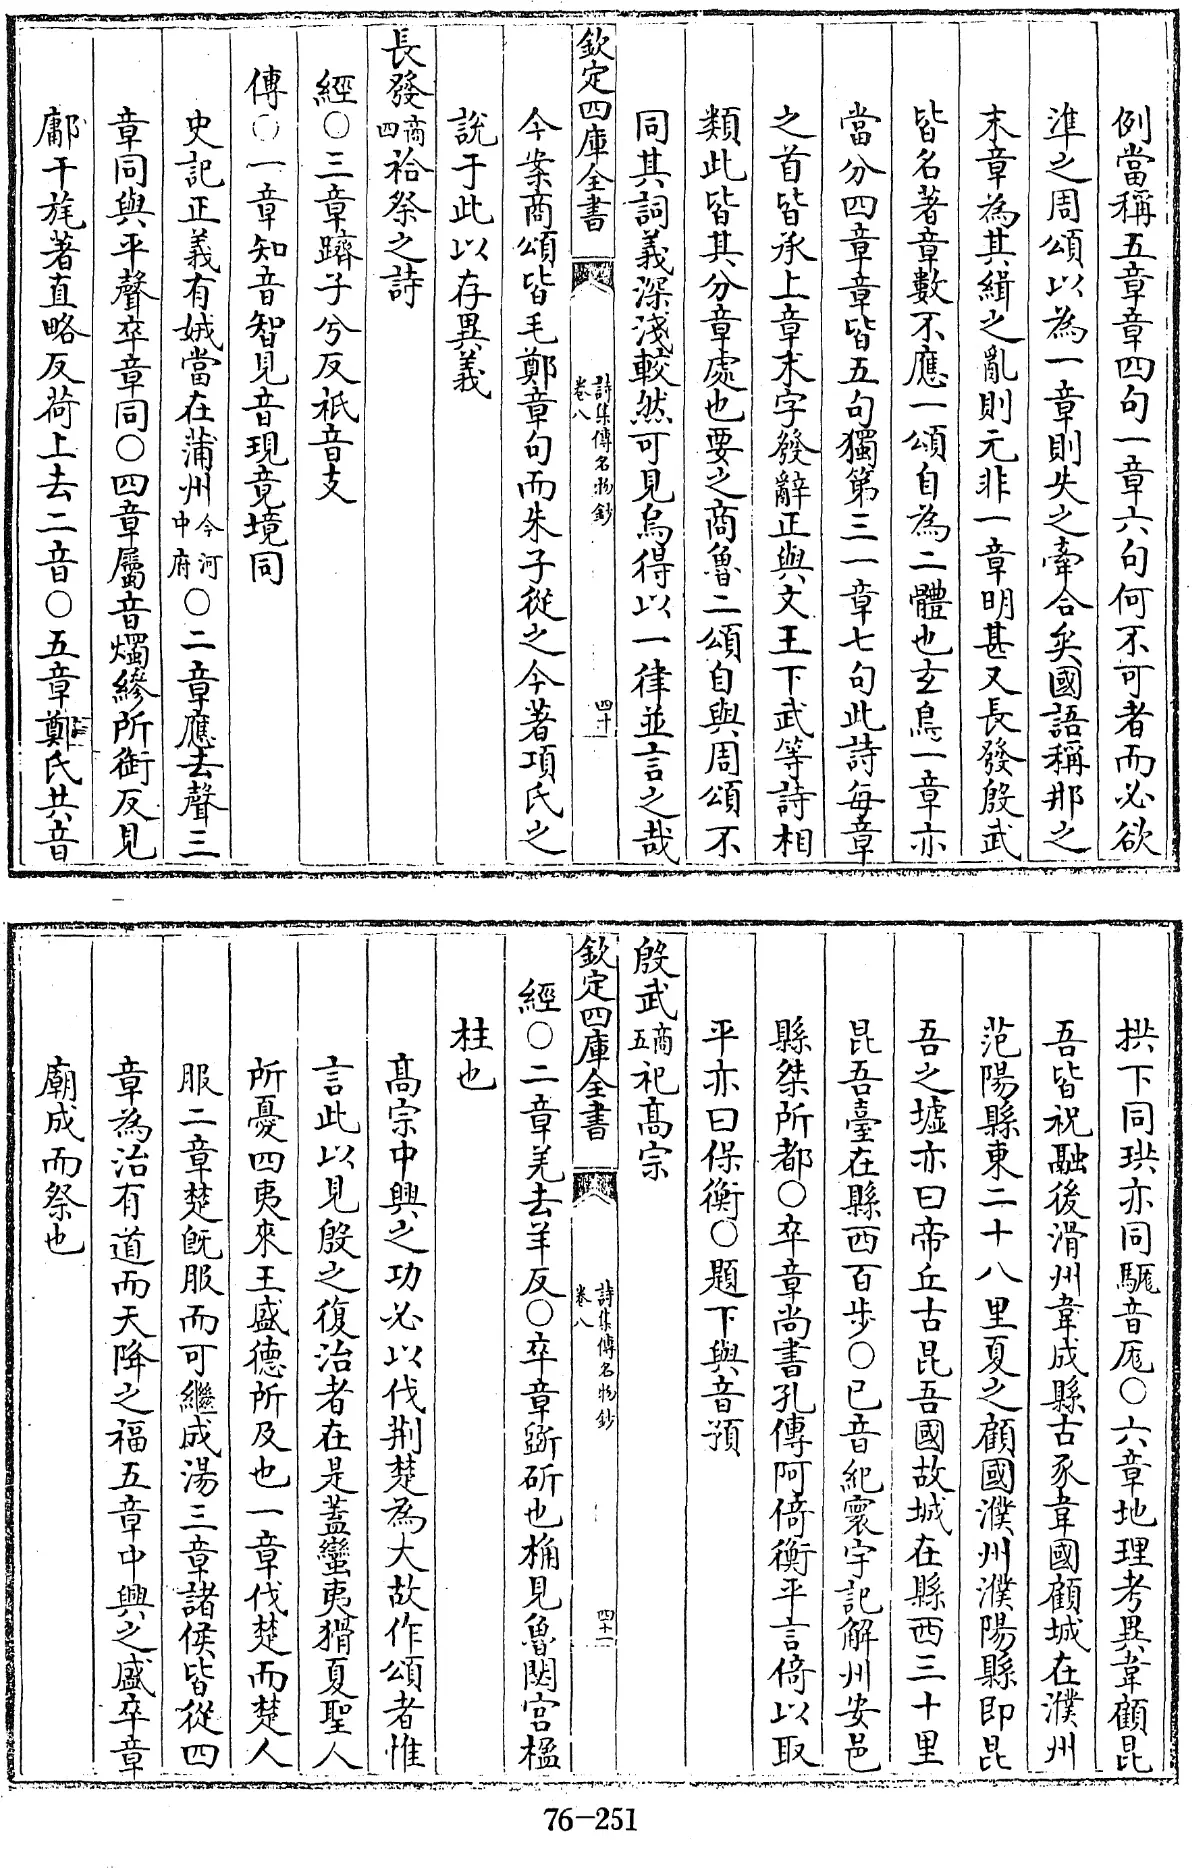 例當稱五章章四句一章六句何不可者而必欲
準之周頌以為一章則失之牽合矣國語稱那之
末章為其緝之亂則元非一章明甚又長發殷武
皆名著章數不應一頌自為二體也玄鳥一章亦
當分四章章皆五句獨第三一章七句此詩每章
之首皆承上章末字發辭正與文王下武等詩相
類此皆其分章處也要之商魯二頌自與周頌不
同其詞義深淺較然可見烏得以一律並言之哉
欽定四庫全書 詩集傳名物鈔 卷八 四十
今案商頌皆毛鄭章句而朱子從之今著項氏之
說于此以存異義
長發商四祫祭之詩
經○三章躋子兮反祇音支
傳○一章知音智見音現竟境同
史記正義有娀當在蒲州今河中府○二章應去聲三
章同與平聲卒章同○四章屬音燭縿所銜反見
鄘干旄著直略反荷上去二音○五章鄭氏共音
拱下同珙亦同駹音厖○六章地理考異韋顧昆
吾皆祝融後滑州韋成縣古豕韋國顧城在濮州
范陽縣東二十八里夏之顧國濮州濮陽縣即昆
吾之墟亦曰帝丘古昆吾國故城在縣西三十里
昆吾臺在縣西百步○已音紀寰宇記解州安邑
縣桀所都○卒章尚書孔傳阿倚衡平言倚以取
平亦曰保衡○題下與音預
殷武商五祀高宗
欽定四庫全書 詩集傳名物鈔 卷八 四十一
經○二章羌去羊反○卒章斲斫也桷見魯閟宫楹
柱也
髙宗中興之功必以伐荆楚為大故作頌者惟
言此以見殷之復治者在是蓋蠻夷猾夏聖人
所憂四夷來王盛德所及也一章伐楚而楚人
服二章楚既服而可繼成湯三章諸侯皆從四
章為治有道而天降之福五章中興之盛卒章
廟成而祭也
76-251